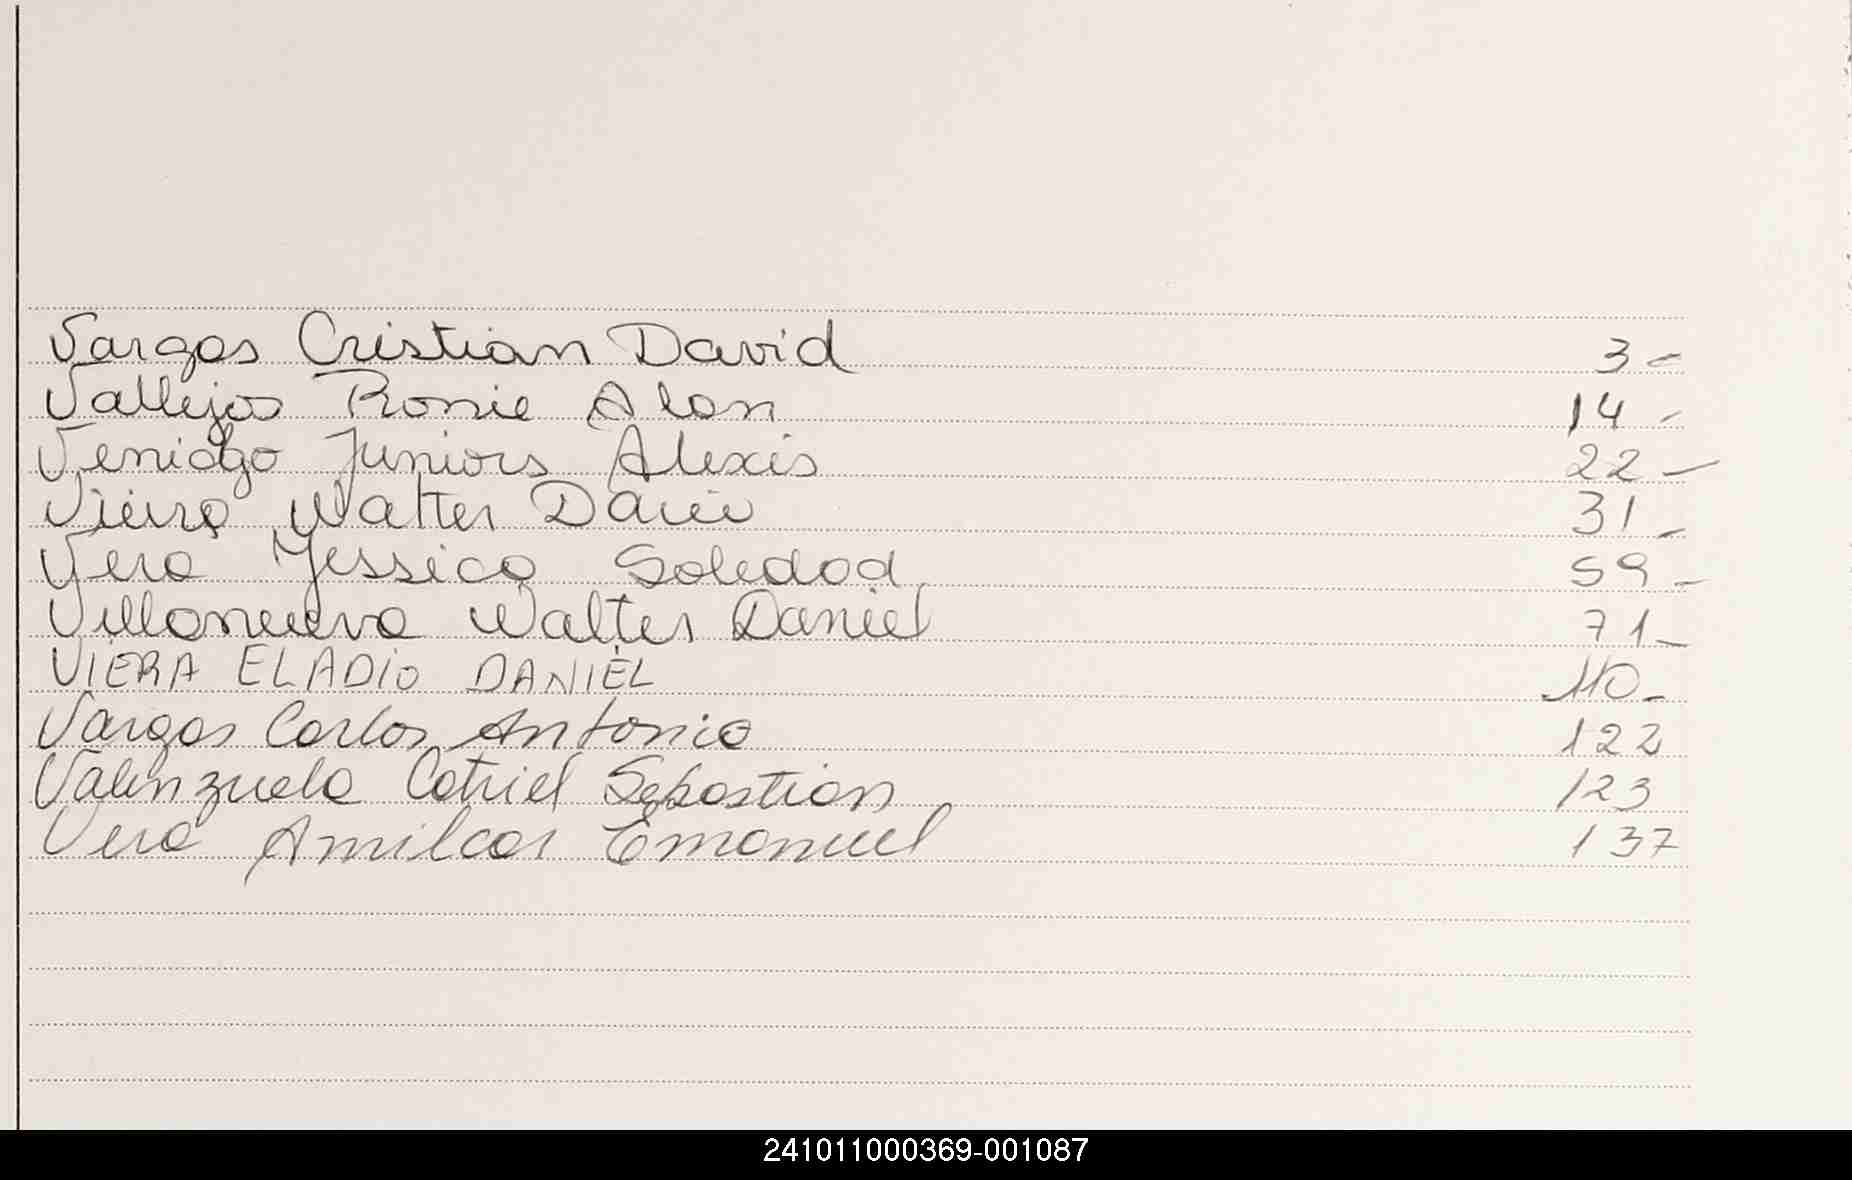 Vargas Cristian David 3-
Vallejos Ronie Alan 14-
Juniors Alexis 22-
Walter 31-
Vera Yessica Soledad 59-
Villanueva Walter Daniel 71-
VIERA ELADIO DANIEL 110-
Vargas Carlos Antonio 122
Valenzuela Catriel Sebastian 123
Vera Amilcar Emanuel 137
241011000369-001087